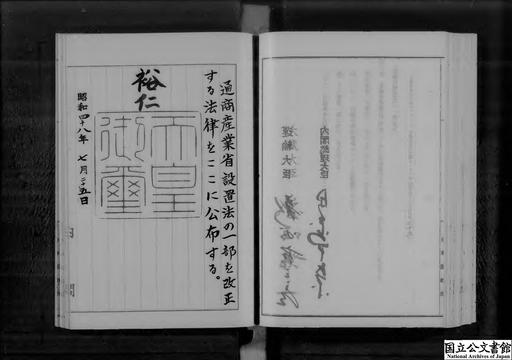 通商産業省設置法の一部を改正
する法律をここに公布する。
裕仁
天皇
御璽
昭和四十八年七月二十五日
内閣総理大臣
国立公文書館
National Archives of Japan